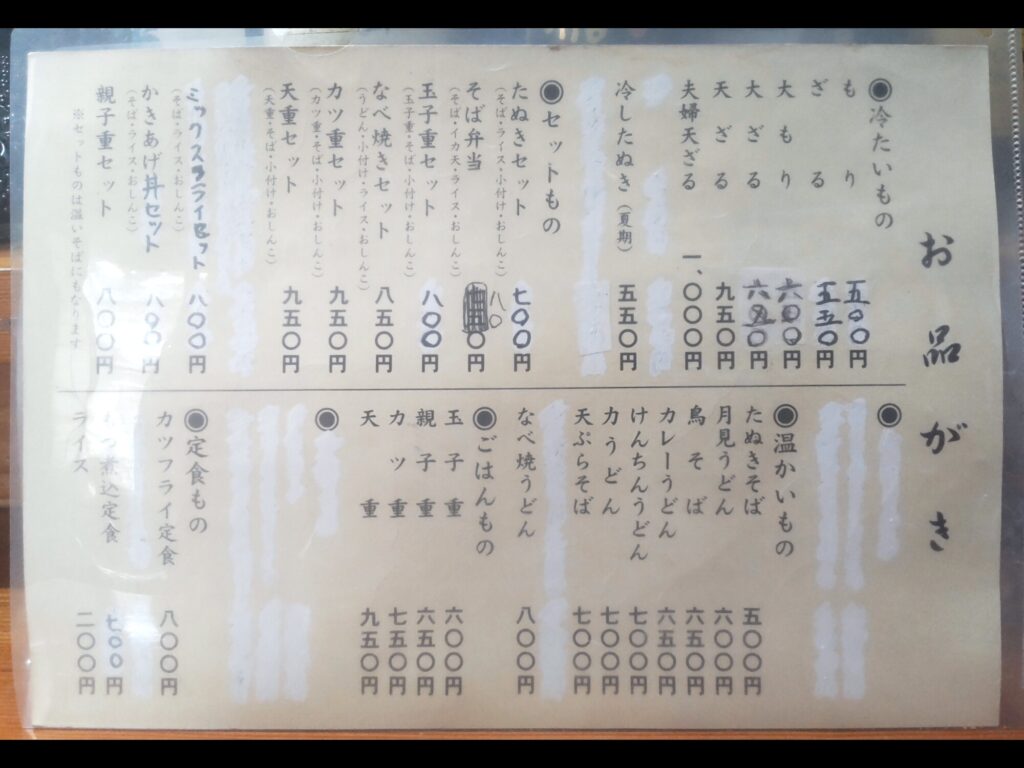 お品がき
◉冷たいもの
もり 五〇〇円
ざる 五五〇円
大もり 六〇〇円
大ざる 六五〇円
天ざる 九五〇円
夫婦天ざる 一、〇〇〇円
冷したぬき（夏期） 五五〇円
◉セットもの
たぬきセット 七〇〇円
（そば・ライス・小付け・おしんこ）
そば弁当 八〇〇円
（そば・イカ天・ライス・小付け・おしんこ）
玉子重セット 八〇〇円
（玉子重・そば・小付け・おしんこ）
なべ焼きセット 八五〇円
（うどん・小付け・ライス・おしんこ）
カツ重セット 九五〇円
（カツ重・そば・小付け・おしんこ）
天重セット 九五〇円
（天重・そば・小付け・おしんこ）
ミックスフライセット 八〇〇円
（そば・ライス・おしんこ）
かきあげ丼セット 八〇〇円
（そば・ライス・おしんこ）
親子重セット 八〇〇円
※セットものは温いそばにもなります
◉
◉温かいもの
たぬきそば 五〇〇円
月見うどん 六〇〇円
鳥そば 六五〇円
カレーうどん 六五〇円
けんちんうどん 七〇〇円
力うどん 七〇〇円
天ぷらそば 七〇〇円
なべ焼うどん 八〇〇円
◉ごはんもの
玉子重 六〇〇円
親子重 六五〇円
カツ重 七五〇円
天重 九五〇円
◉
◉定食もの
カツフライ定食 八〇〇円
煮込定食 七〇〇円
ライス 二〇〇円